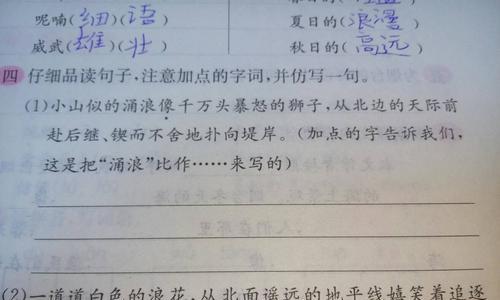 呢喃(细)(语) 夏日的(浪漫)
威武(雄)(壮) 秋日的(高远)
四 仔细品读句子,注意加点的字词,并仿写一句。
(1)小山似的涌浪像千万头暴怒的狮子,从北边的天际前
赴后继、锲而不舍地扑向堤岸。(加点的字告诉我们,
这是把“涌浪”比作……来写的)
(2)一道道白色的浪花,从北面遥远的地平线嬉笑着追逐